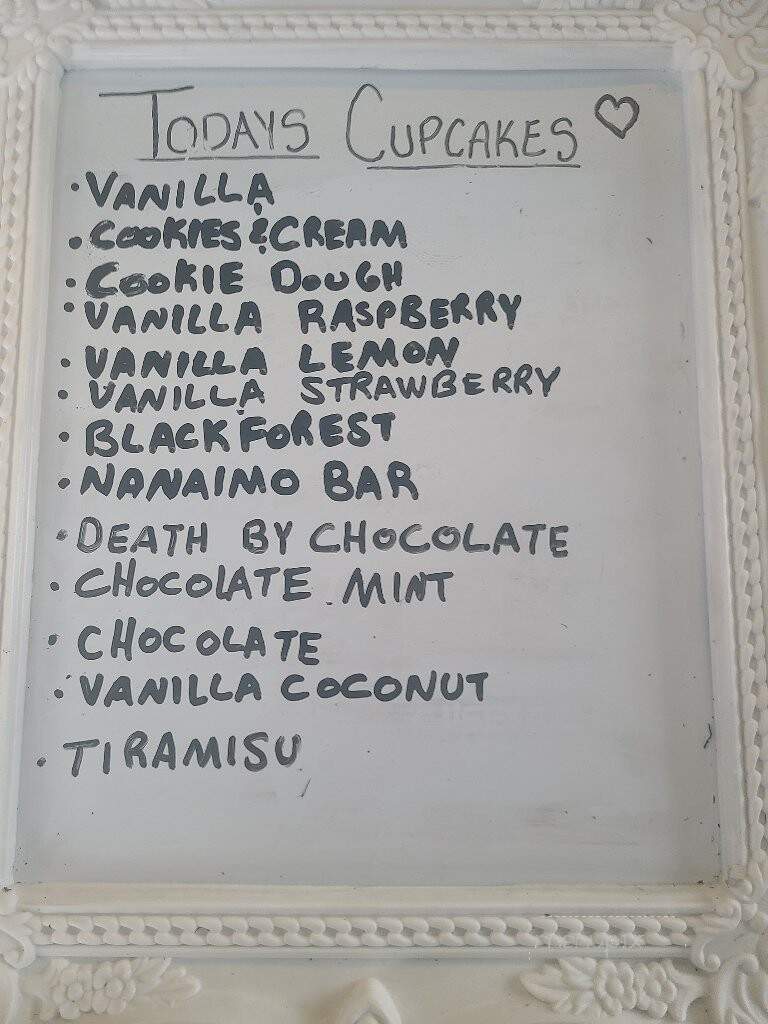 TODAYS CUPCAKES ♡
• VANILLA
• COOKIES & CREAM
• COOKIE DOUGH
• VANILLA RASPBERRY
• VANILLA LEMON
• VANILLA STRAWBERRY
• BLACK FOREST
• NANAIMO BAR
• DEATH BY CHOCOLATE
• CHOCOLATE MINT
• CHOCOLATE
• VANILLA COCONUT
• TIRAMISU